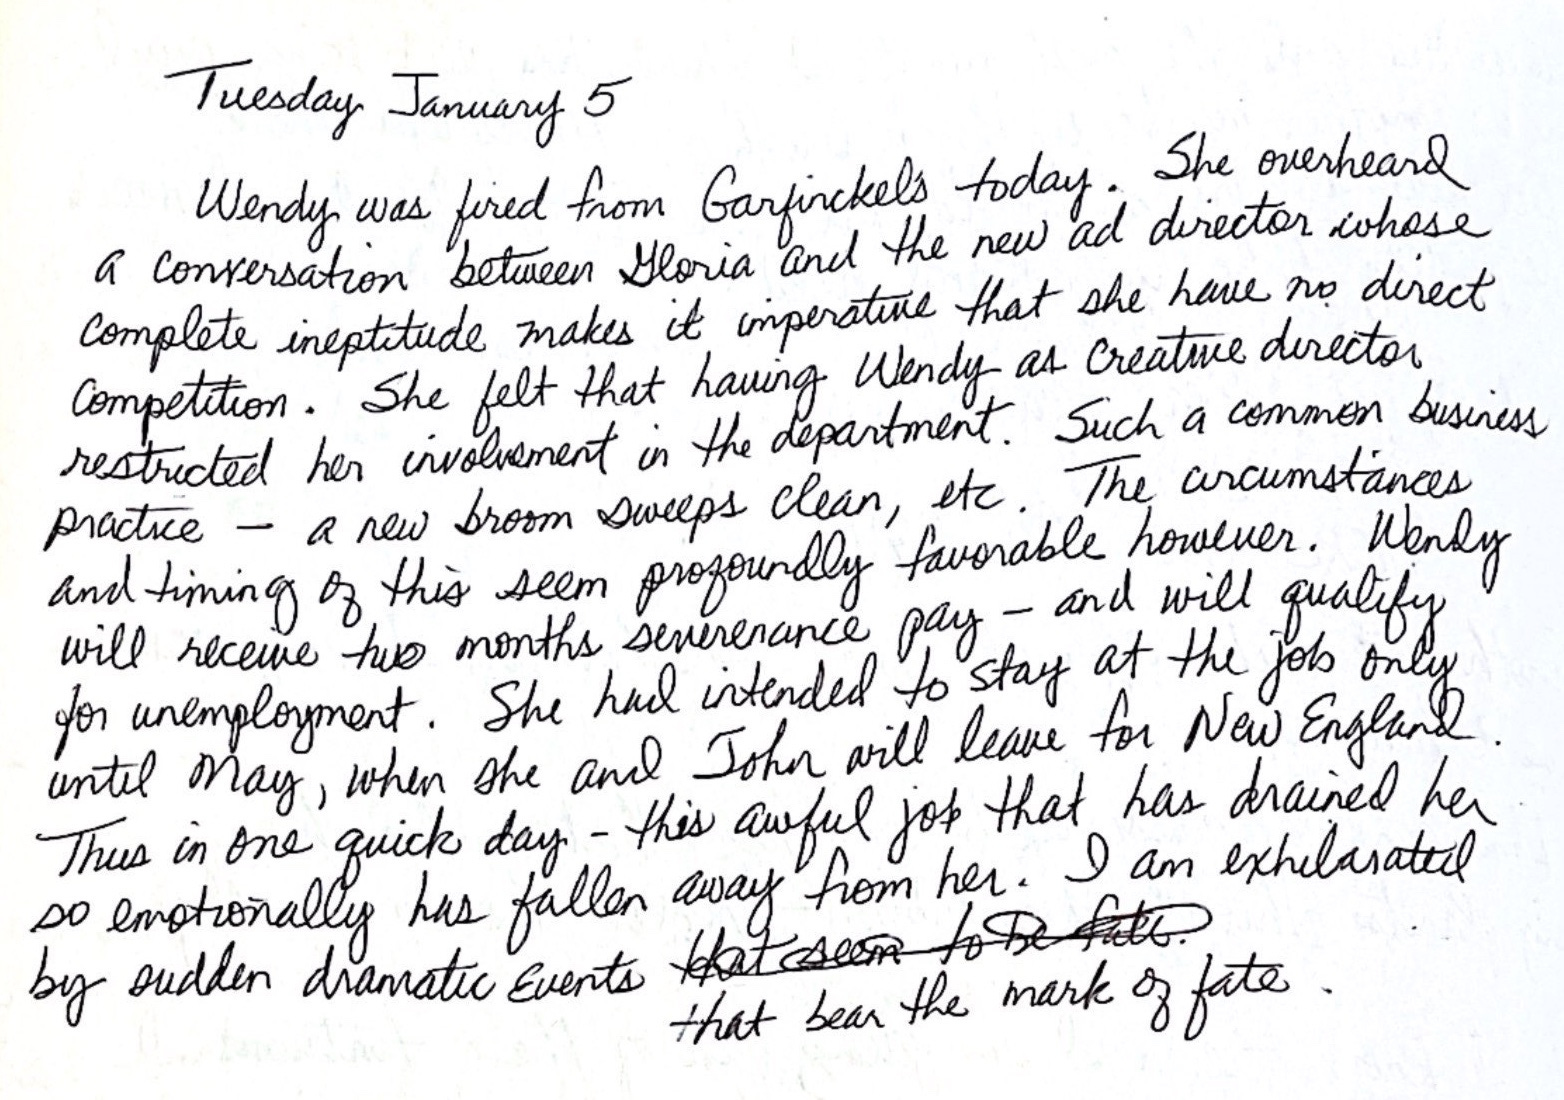 Tuesday January 5
Wendy was fired from Garfinckel's today. She overheard
a conversation between Gloria and the new ad director whose
complete ineptitude makes it imperative that she have no direct
competition. She felt that having Wendy as creative director
restricted her involvement in the department. Such a common business
practice – a new broom sweeps clean, etc. The circumstances
and timing of this seem profoundly favorable however. Wendy
will receive two months severenance pay – and will qualify
for unemployment. She had intended to stay at the job only
until May, when she and John will leave for New England.
Thus in one quick day – this awful job that has drained her
so emotionally has fallen away from her. I am exhilarated
by sudden dramatic events that seem to be fate.
that bear the mark of fate.